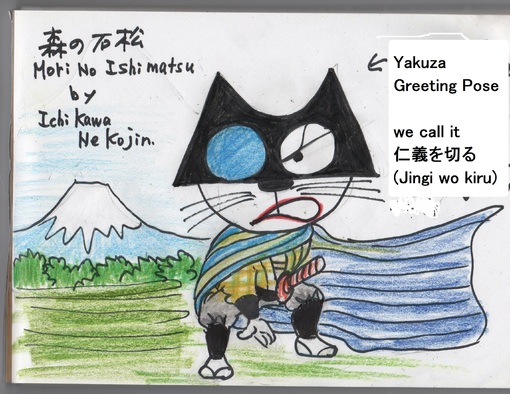 森の石松
Mori No Ishimatsu
by
Ichikawa
Nekojin.
Yakuza
Greeting Pose
we call it
仁義を切る
(Jingi wo kiru)